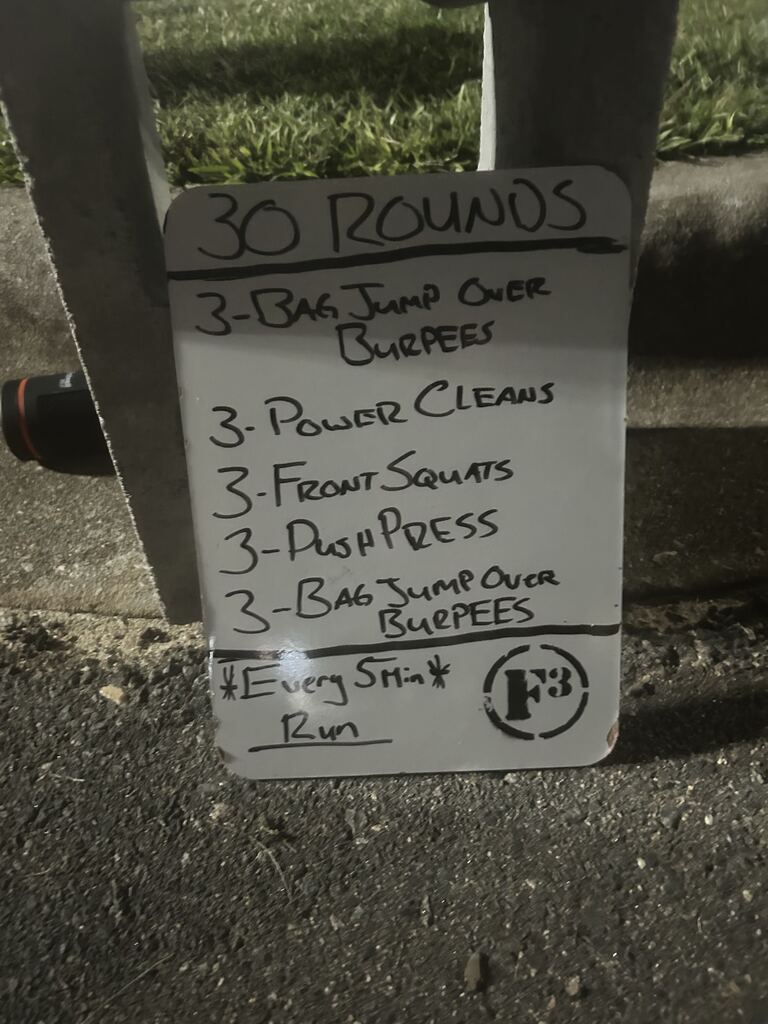 30 ROUNDS
3-BAG JUMP OVER
BURPEES
3-POWER CLEANS
3-FRONT SQUATS
3-PUSH PRESS
3-BAG JUMP OVER
BURPEES
*Every 5 Min*
Run
F3